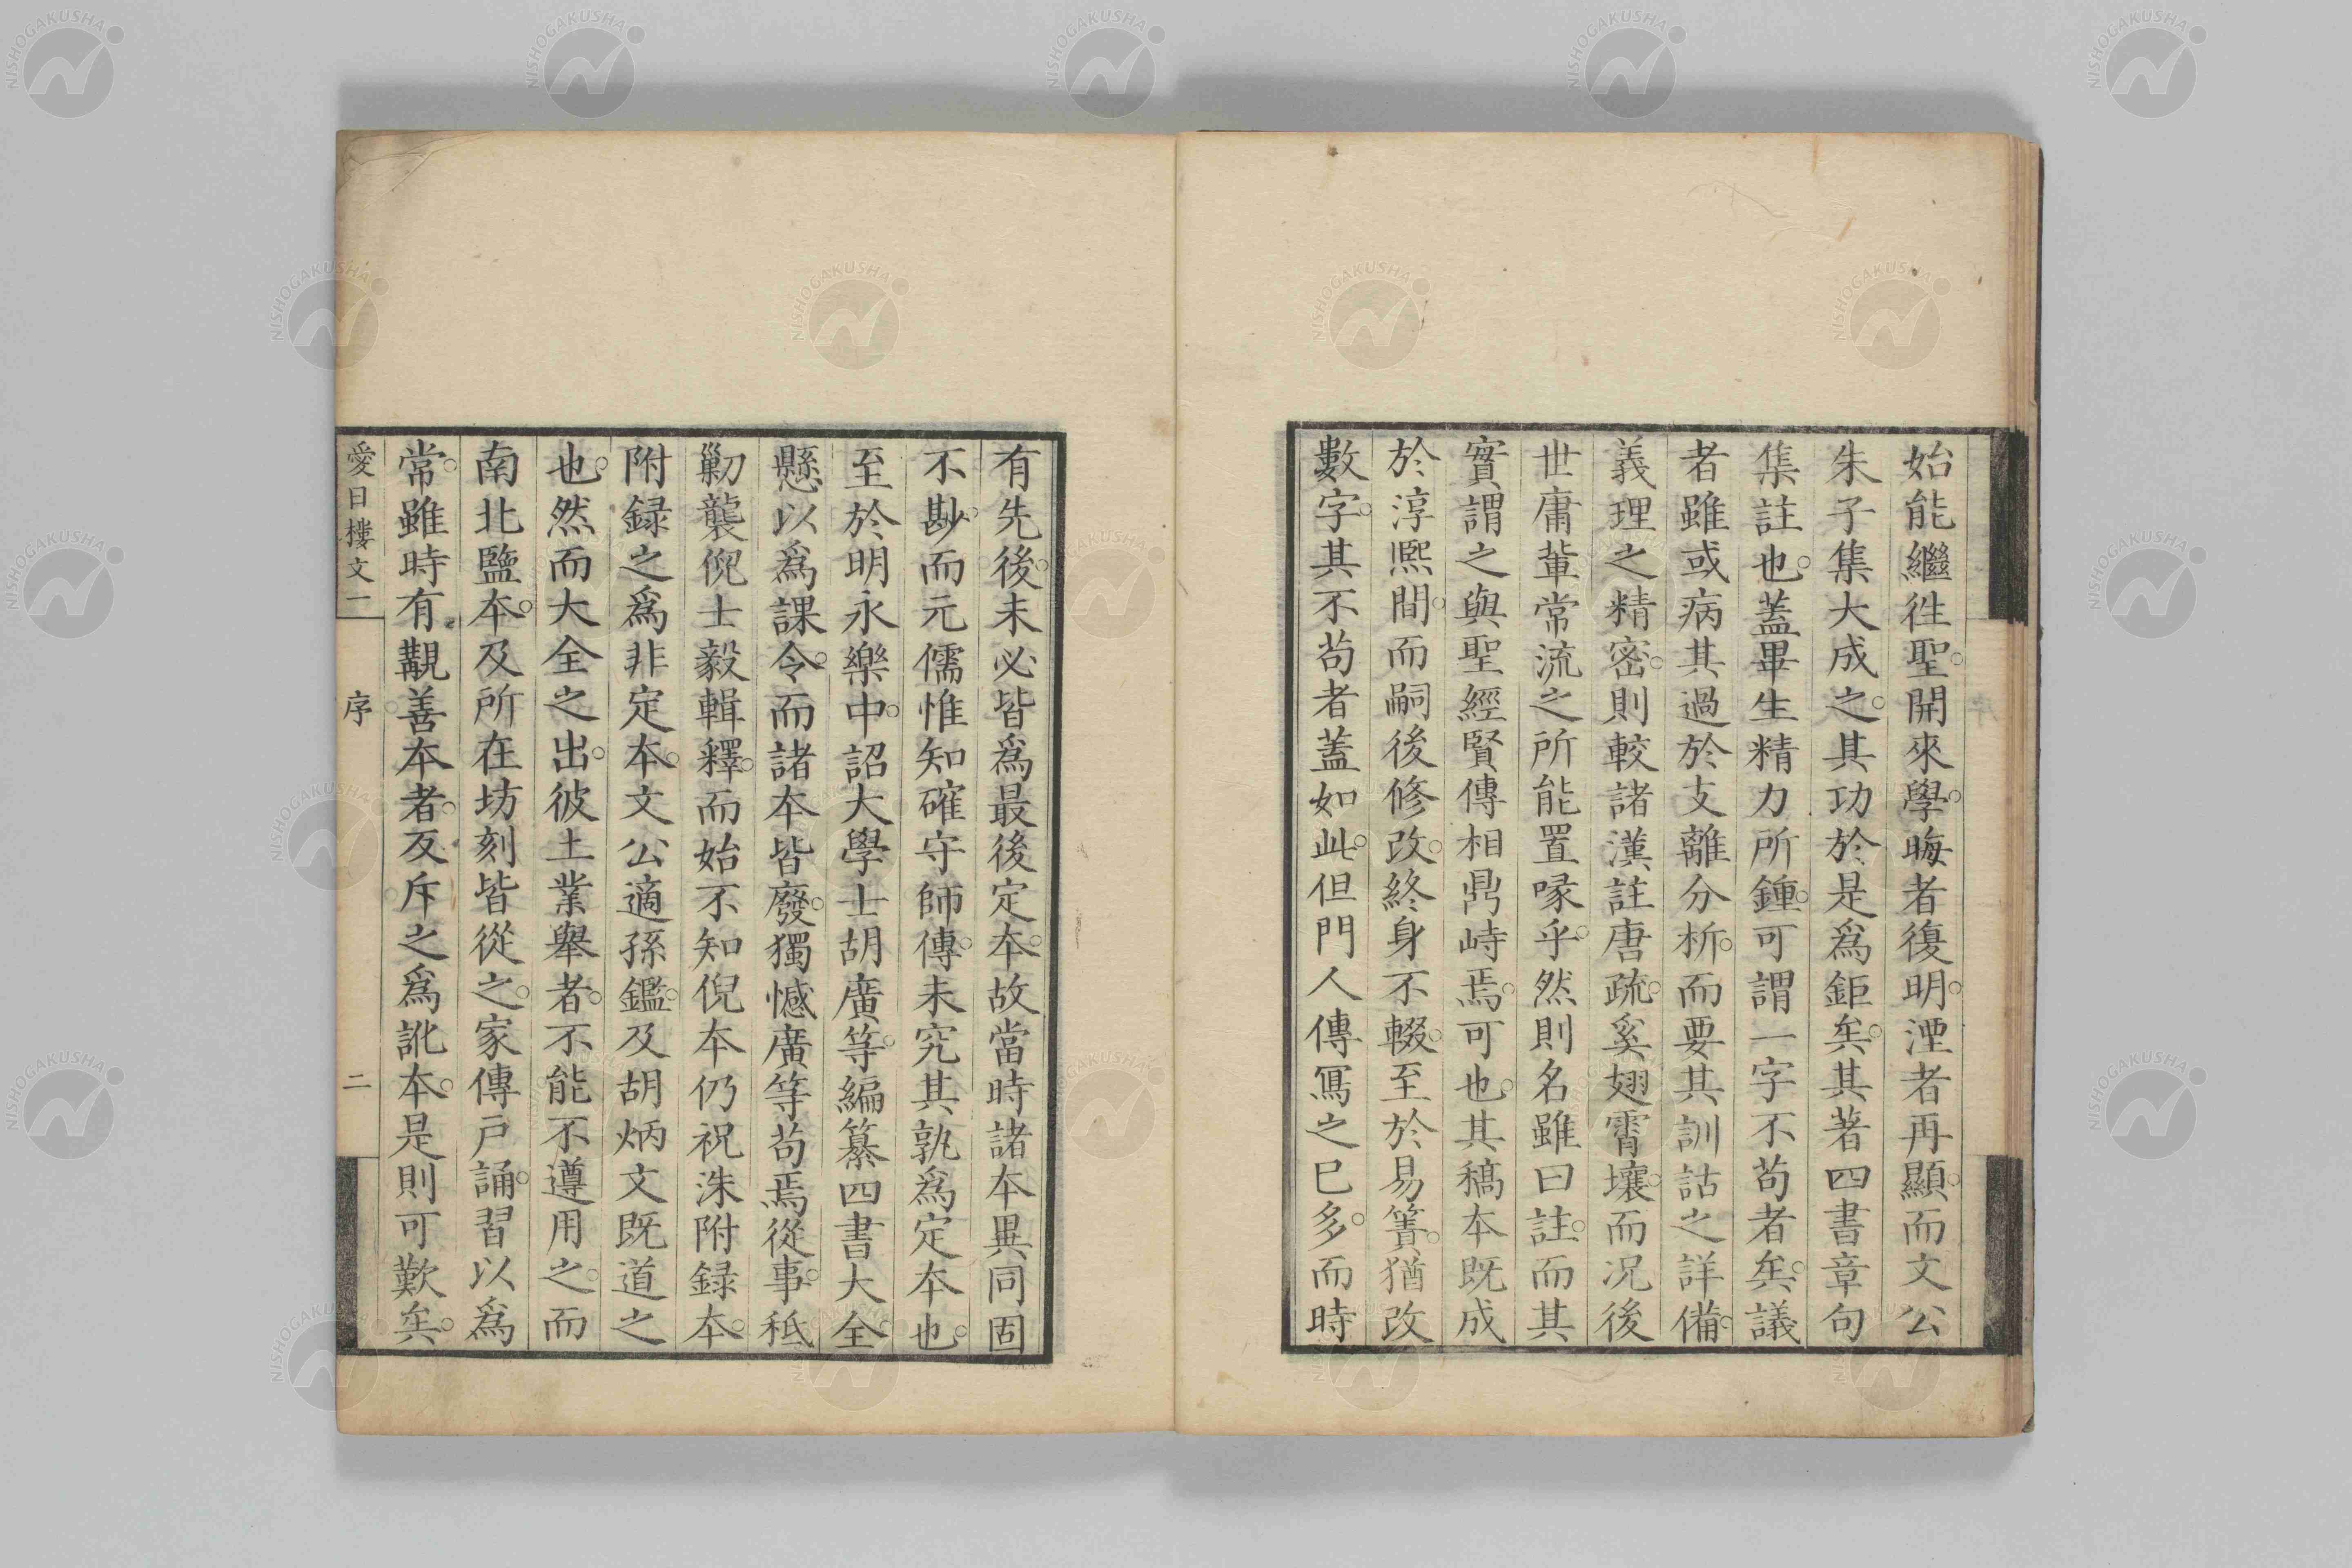 始能繼徃聖。開來學。晦者復明。湮者再顯。而文公
朱子集大成之。其功於是爲鉅矣。其著四書章句
集註也。蓋畢生精力所鍾。可謂一字不苟者矣。議
者雖或病其過於支離分析。而要其訓詁之詳備。
義理之精密。則較諸漢註唐疏。奚翅霄壤。而况後
世庸輩常流之所能置喙乎。然則名雖曰註。而其
實謂之與聖經賢傳相鼎峙焉。可也。其稿本既成
於淳熙間。而嗣後修改。終身不輟。至於易簀。猶改
數字。其不苟者蓋如此。但門人傳寫之已多。而時
有先後。未必皆爲最後定本。故當時諸本異同固
不尠。而元儒惟知確守師傳。未究其孰爲定本也。
至於明永樂中。詔大學士胡廣等。編纂四書大全
懸以爲課令。而諸本皆廢。獨憾廣等苟焉從事。秪
勦襲倪士毅輯釋。而始不知倪本仍祝洙附録本。
附録之爲非定本。文公適孫鑑。及胡炳文既道之
也。然而大全之出。彼土業舉者。不能不遵用之。而
南北監本。及所在坊刻皆從之。家傳戸誦。習以爲
常。雖時有覯善本者。反斥之爲訛本。是則可歎矣。
愛日樓文一 序 二
NISHOGAKUSHA